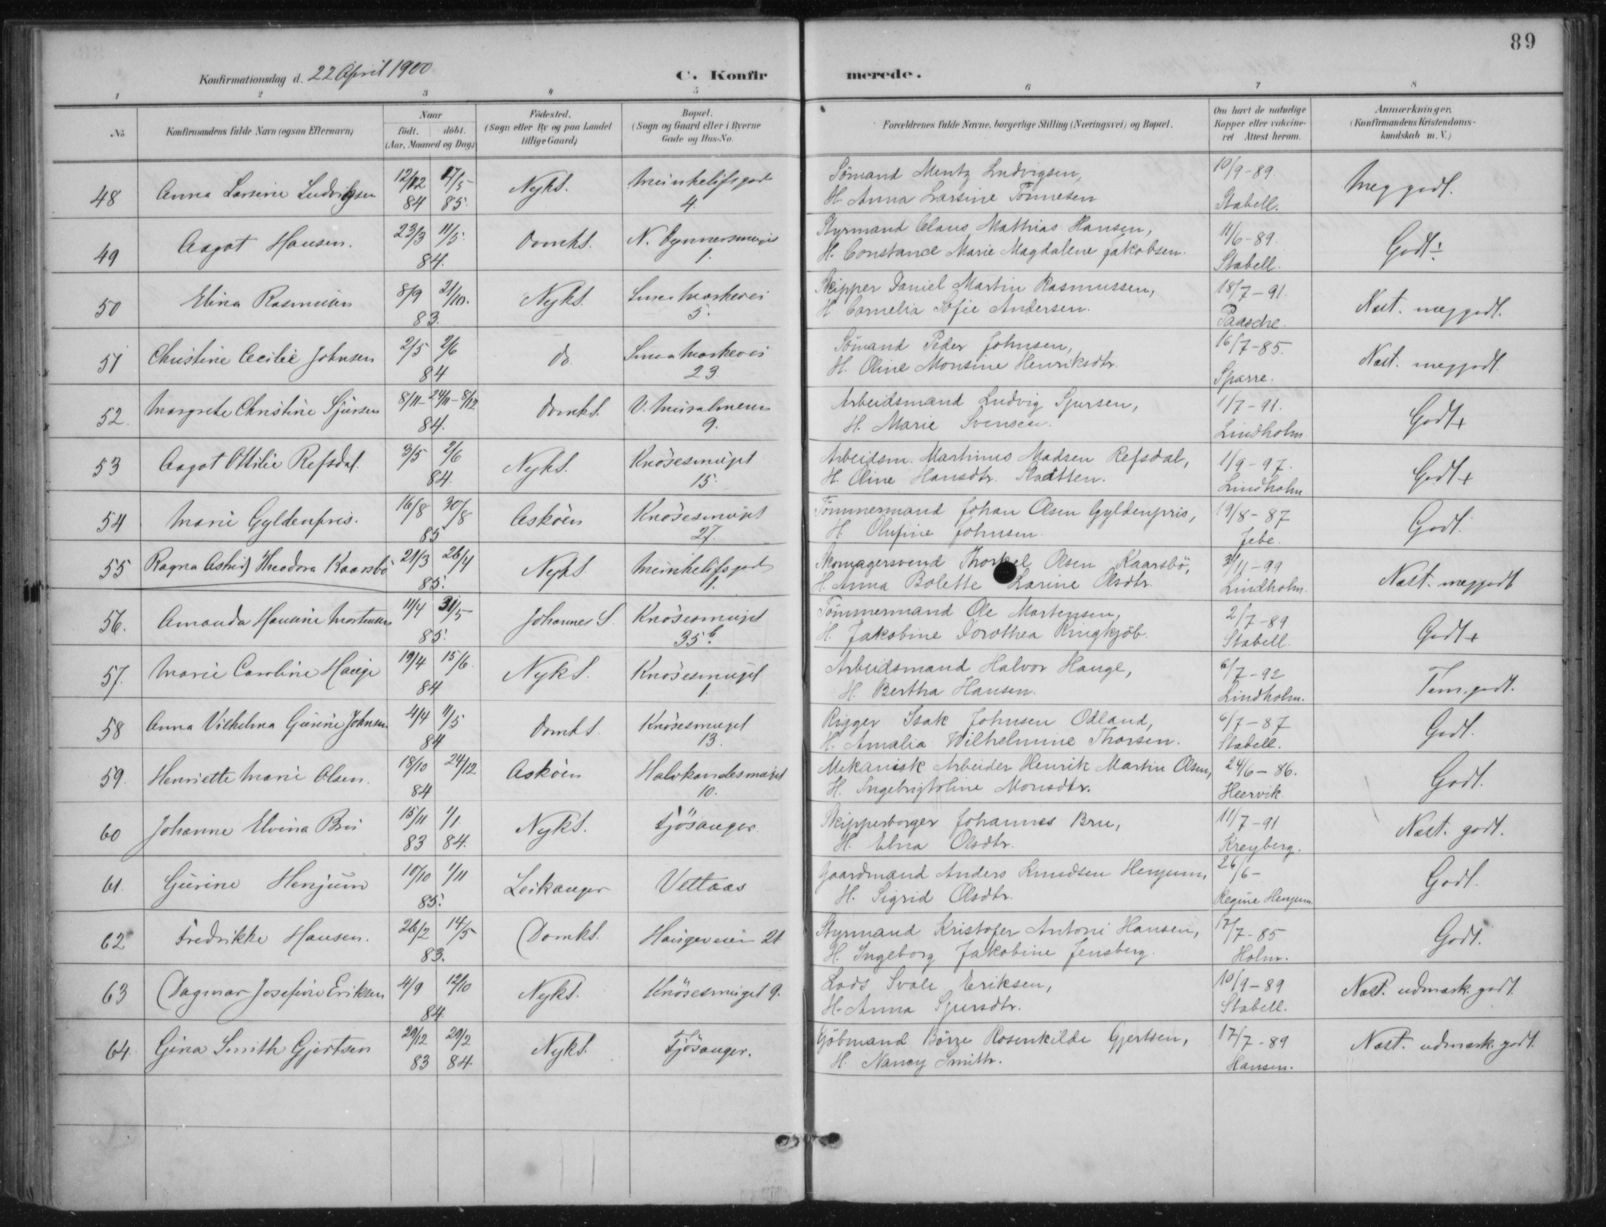 89
Konfirmationsdag d. 22 April 1900
C. Konfir merede.
1 2 3 4 5 6 7 8
No.
Konfirmandens fulde Navn (ogsaa Efternavn)
Naar
født. døbt.
(Aar, Maaned og Dag)
Fødested.
(Sogn eller By og paa Landet
tillige Gaard)
Bopæl.
(Sogn og Gaard eller i Byerne
Gade og Hus-No.
Forældrenes fulde Navne, borgerlige Stilling (Næringsvei) og Bopæl.
Om havt de naturlige
Kopper eller vaccine-
ret Attest herom.
Anmærkninger.
(Konfirmandens Kristendoms-
kundskab m. V.)
48 Anna Larsine Ludvigsen 12/12 84 17/5 85. Nykt. 4. Sømand Mentz Ludvigsen, 19/9-89
H. Anna Larsine Tönnesen Stabell. Meg godt.
49 Aagot Hansen. 23/3 11/5. 84. Domk. N. 1. Styrmand Claus Mathias Hansen, 11/6-89
H. Constance Marie Magdalene Jakobsen. Stabell. Godt÷
50 Elina Rasmussen 8/9 21/10. 83. Nykt. 5. Skipper Daniel Martin Rasmussen, 18/7-91
H. Cornelia Sofie Andersen. Paasche. Næst. meg godt.
51 Christine Cecilie Johnsen 2/5 2/6 84 do 23 Sömand Peder Johnsen, 16/7-85.
H. Oline Monsine Henriksdtr. Sparre. Næst. meg godt
52 Margrete Christine Sjursen 8/11 24/11-8/12 84. Domk. V. Muralmenn. 9. Arbeidsmand Ludvig Sjursen, 1/7-91.
H. Marie Svensen. Lindholm Godt+
53 Aagot Ottilie Refsdal. 3/5 2/6 84. Nykt. Knösesmuget 15 Arbeidsm. Martinus Madsen Refsdal, 1/9-97.
H. Oline Hansdtr. Lindholm Godt+
54 Marie Gyldenpris. 16/8 30/8 85 Askøen Knösesmuget 27. Tömmermand Johan Olsen Gyldenpris, 19/8-87
H. Olufine Johnsen Jebe. Godt.
55 Ragna Astrid Theodora Kaarsbö 21/3 26/4 85. Nykt 1. Skomagersvend Thorkel Olsen Kaarsbö, 3/1-99
H. Anna Bolette Karine Olsdtr. Lindholm. Næst. meg godt
56. Amanda Hansine Mortensen 11/4 31/5- 85. Johannes S. Knösesmuget 35 b. Tömmermand Ole Mortensen, 2/7-89
H. Jakobine Dorothea Ringkjöb. Stabell. Godt+
57. Marie Caroline Hauge 19/4 15/6. 84 Nykt. Knösesmuget 1. Arbeidsmand Halvor Hauge, 6/7-92
H. Bertha Hansen. Lindholm. Tem. godt.
58 Anna Vilhelma Gurine Johnsen 4/4 11/5 84 Domk. Knösesmuget 13. Rigger Isak Johnsen Odland, 6/7-87
H. Amalia Wilhelmine Thorsen. Stabell. Godt.
59. Henriette Marie Olsen. 18/10 24/12 84 Askøen Halvkandesmuget 10. Mekanisk Arbeider Henrik Martin Olsen, 24/6-86.
H. Ingebrigtoline Monsdtr. Heervik. Godt.
60 Johanne Elvina Bru 15/11 83 1/1 84. Nykt. Fjösanger Skipperborger Johannes Bru, 11/7-91
H. Elna Olsdtr. Kreyberg. Næst. godt.
61. Gurine Henjum 10/10 1/11 85. Leikanger Vettaas Gaardmand Anders Knudsen Henjum, 26/6-
H. Sigrid Olsdtr. Regine Henjum. Godt.
62 Fredrikke Hansen. 26/2 14/5 83. Domk. Haugeveien 21 Styrmand Kristofer Antoni Hansen, 17/7-85
H. Ingeborg Jakobine Jensberg. Holm. Godt.
63 Dagmar Josefine Eriksen 4/9 12/10 84. Nykt. Knösesmuget 9. Lods Svale Eriksen, 10/9-89
H. Anna Sjursdtr. Stabell. Næst. udmærk. godt.
64. Gina Smith Gjertsen 29/12 83 29/2 84. Nykt. Fjösanger. Kjöbmand Börge Rosenkilde Gjertsen, 17/7-89
H. Nancy Smith. Hansen. Næst. udmærk. godt